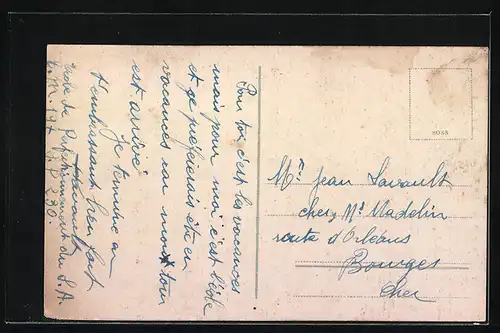 Pour toi c'est les vacances
mais pour moi c'est l'école
et je préférerais être en
vacances car mon tour
est arrivé.
Je termine en
t'embrassant bien fort
Ecole de Perfectionnement du S.A.
8088
Mr. Jean Savault
chez Mr Madelin
route d'Orléans
Bourges
Cher